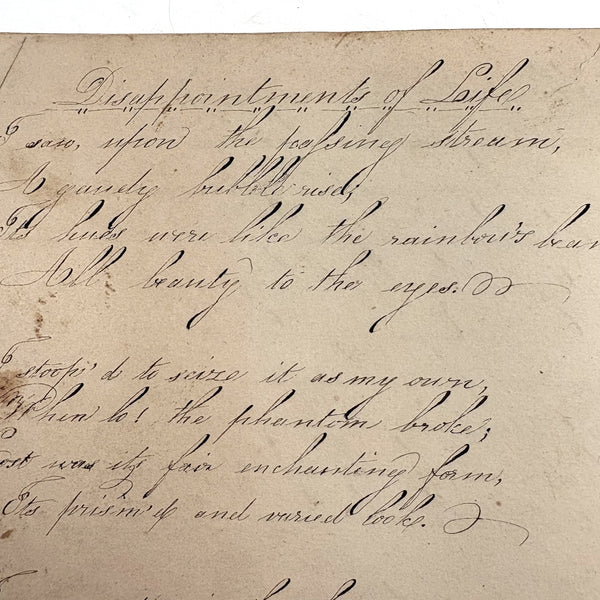 Disappointments of Life
I saw, upon the passing stream,
A gaudy bubble rise;
Its hues were like the rainbow's bea
All beauty to the eyes.
I stoop'd to seize it as my own,
When lo! the phantom broke;
Lost was its fair enchanting form,
Its prism'd and varied look.